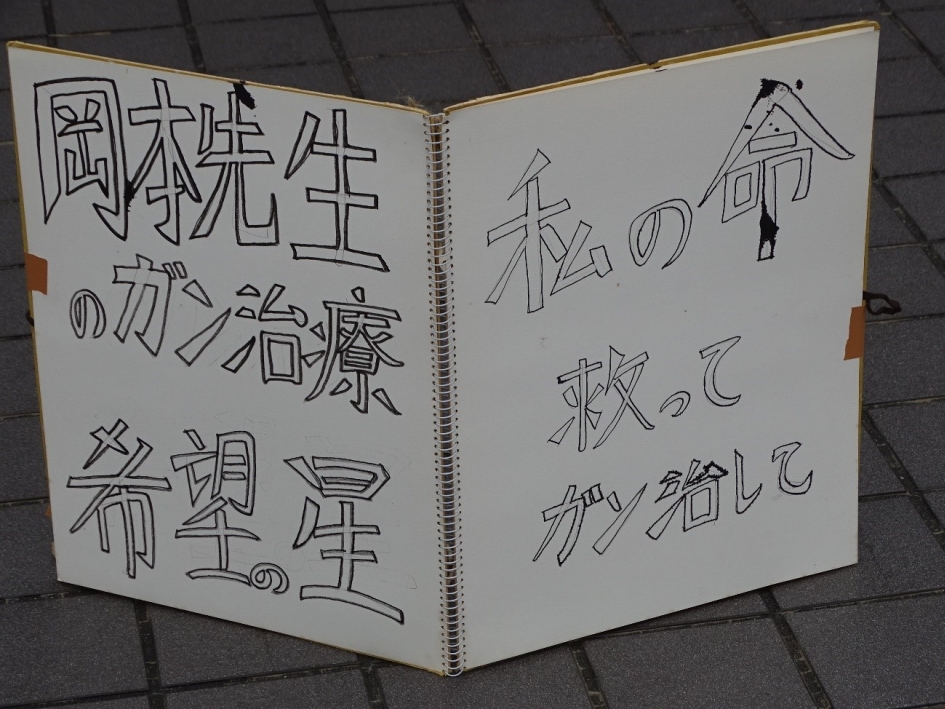 岡本先生
のガン治療
希望の星
私の命
救って
ガン治して